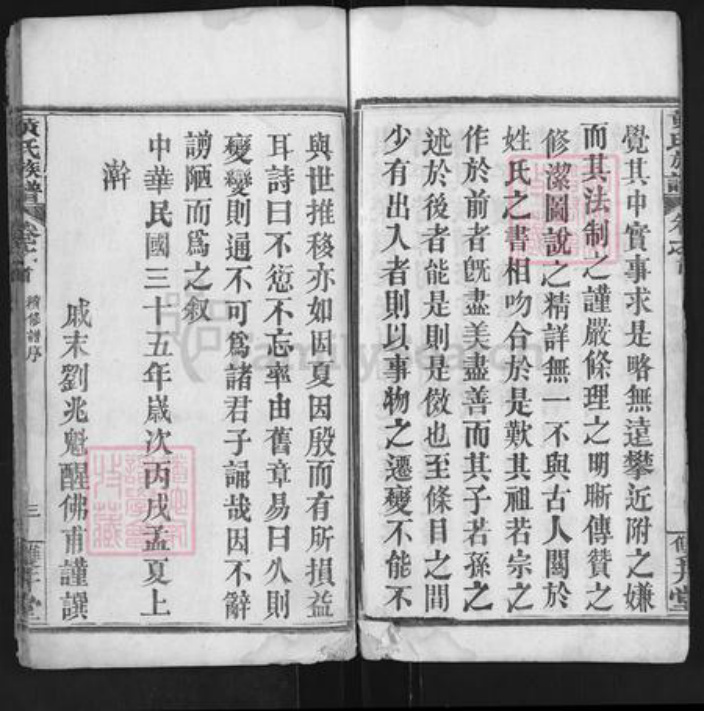 覺其中實事求是略無遠攀近附之嫌
而其法制之謹嚴條理之明晰傳贊之
修潔圖說之精詳無一不與古人闗於
姓氏之書相吻合於是歎其祖若宗之
作於前者旣盡美盡善而其子若孫之
述於後者能是則是傚也至條目之間
少有出入者則以事物之遷變不能不
與世推移亦如因夏因殷而有所損益
耳詩曰不愆不忘率由舊章易曰久則
變變則通不可爲諸君子誦哉因不辭
謭陋而爲之叙
中華民國三十五年嵗次丙戌孟夏上
澣
戚末劉兆魁醒佛甫謹譔
黃氏族譜
卷之首
續修譜序
三
雙井堂
FamilySearch